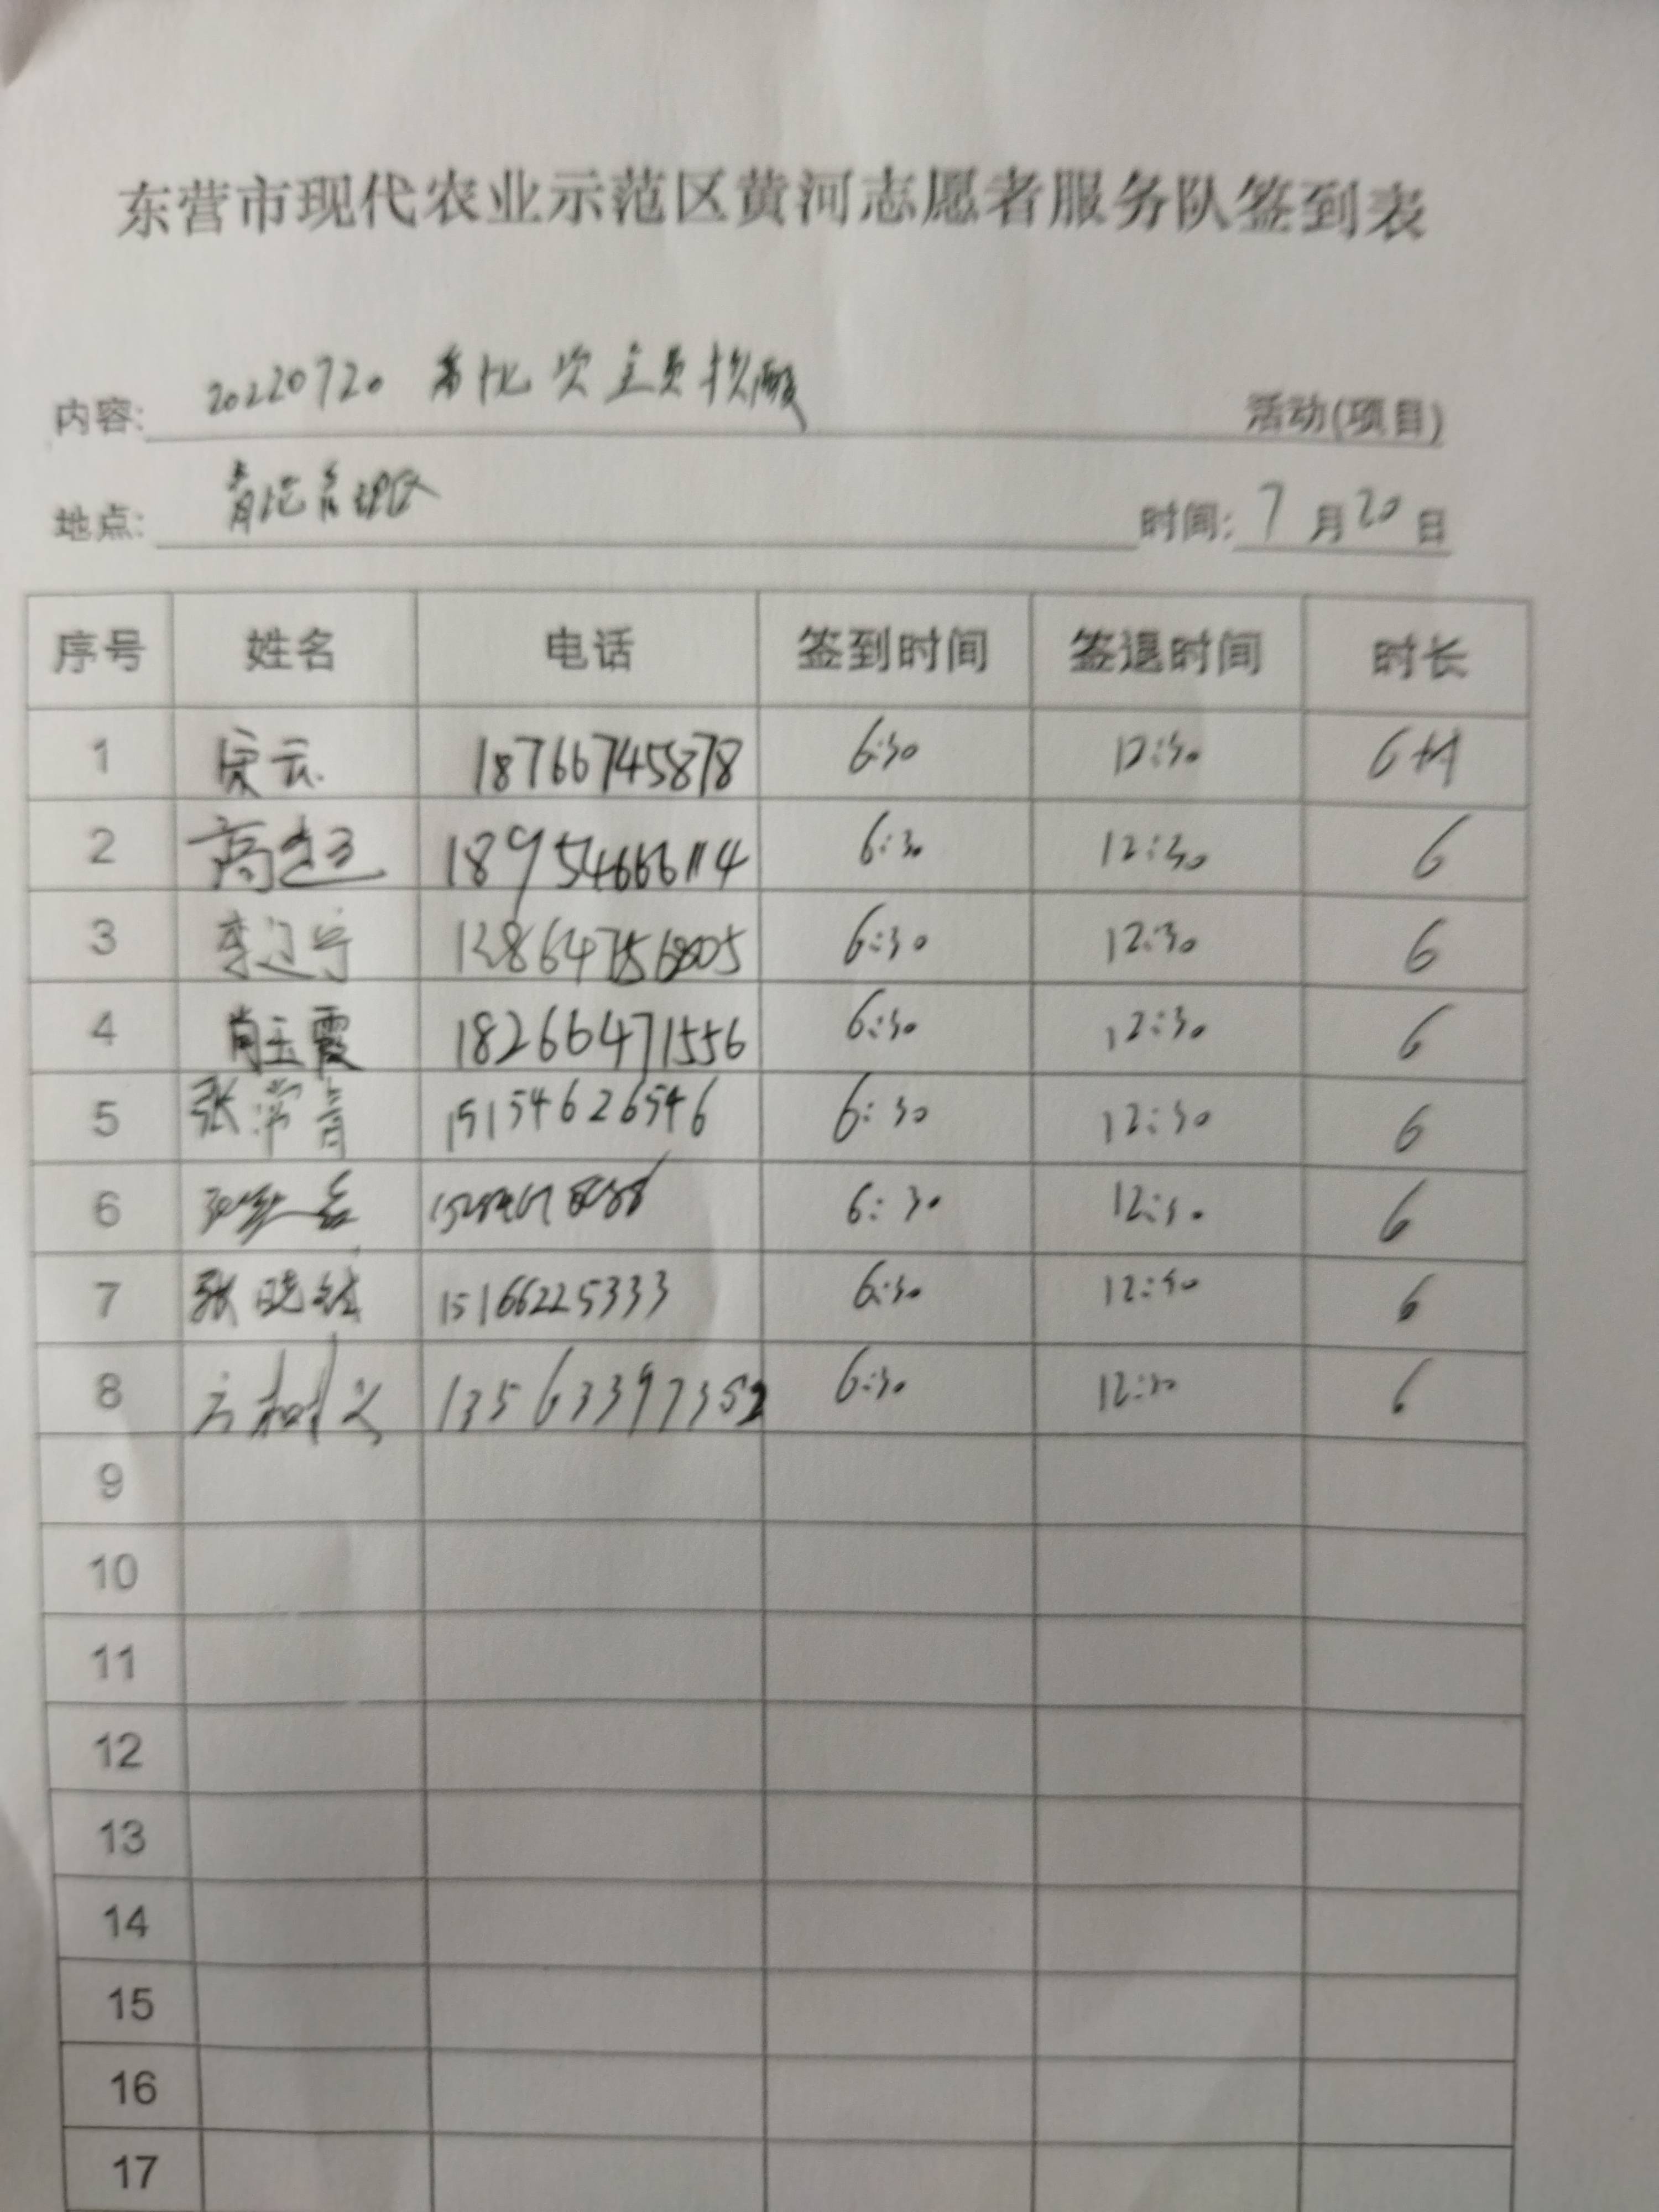 东营市现代农业示范区黄河志愿者服务队签到表
内容: 20220720 次全员核酸 活动(项目)
地点: 管理区 时间: 7月20日
序号 姓名 电话 签到时间 签退时间 时长
1 18766745878 6:30 12:30 6小时
2 高 18954666114 6:30 12:30 6
3 李 6:30 12:30 6
4 肖玉霞 18266471556 6:30 12:30 6
5 张常青 15154626546 6:30 12:30 6
6 6:30 12:30 6
7 张晓 15166225333 6:30 12:30 6
8 方树义 13563397352 6:30 12:30 6
9
10
11
12
13
14
15
16
17